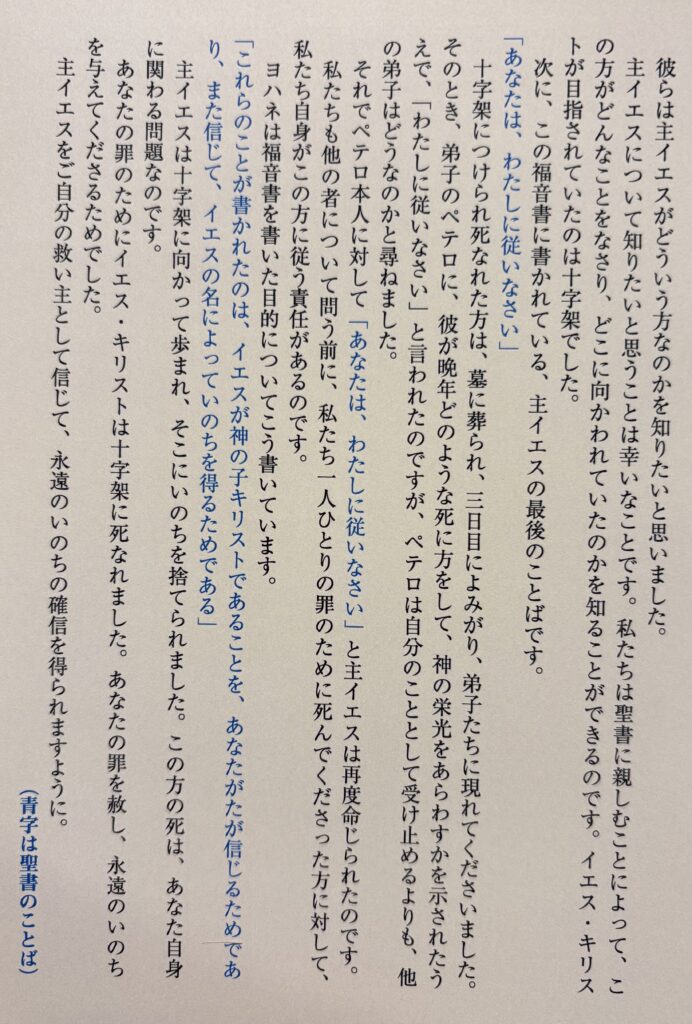 彼らは主イエスがどういう方なのかを知りたいと思いました。
主イエスについて知りたいと思うことは幸いなことです。私たちは聖書に親しむことによって、こ
の方がどんなことをなさり、どこに向かわれていたのかを知ることができるのです。イエス・キリス
トが目指されていたのは十字架でした。
次に、この福音書に書かれている、主イエスの最後のことばです。
「あなたは、わたしに従いなさい」
十字架につけられ死なれた方は、墓に葬られ、三日目によみがり、弟子たちに現れてくださいました。
そのとき、弟子のペテロに、彼が晩年どのような死に方をして、神の栄光をあらわすかを示されたう
えで、「わたしに従いなさい」と言われたのですが、ペテロは自分のこととして受け止めるよりも、他
の弟子はどうなのかと尋ねました。
それでペテロ本人に対して「あなたは、わたしに従いなさい」と主イエスは再度命じられたのです。
私たちも他の者について問う前に、私たち一人ひとりの罪のために死んでくださった方に対して、
私たち自身がこの方に従う責任があるのです。
ヨハネは福音書を書いた目的についてこう書いています。
「これらのことが書かれたのは、イエスが神の子キリストであることを、あなたがたが信じるためであ
り、また信じて、イエスの名によっていのちを得るためである」
主イエスは十字架に向かって歩まれ、そこにいのちを捨てられました。この方の死は、あなた自身
に関わる問題なのです。
あなたの罪のためにイエス・キリストは十字架に死なれました。あなたの罪を赦し、永遠のいのち
を与えてくださるためでした。
主イエスをご自分の救い主として信じて、永遠のいのちの確信を得られますように。
（青字は聖書のことば）